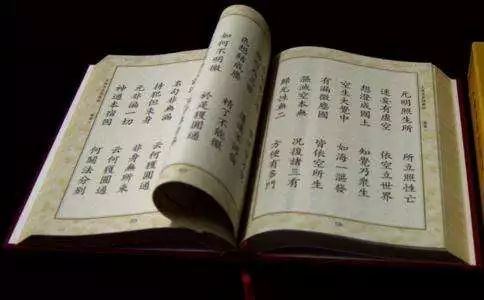 元明照生所　所立照性亡
迷妄有虛空　依空立世界
想澄成國土　知覺乃眾生
空生大覺中　如海一漚發
有漏微塵國　皆依空所生
漚滅空本無　況復諸三有
歸元性無二　方便有多門
色想結成塵　精了不能徹
如何不明徹　於是獲圓通
名句非無漏　云何獲圓通
持犯但束身　非身無所束
元非遍一切　云何獲圓通
神通本宿因　何關法分別